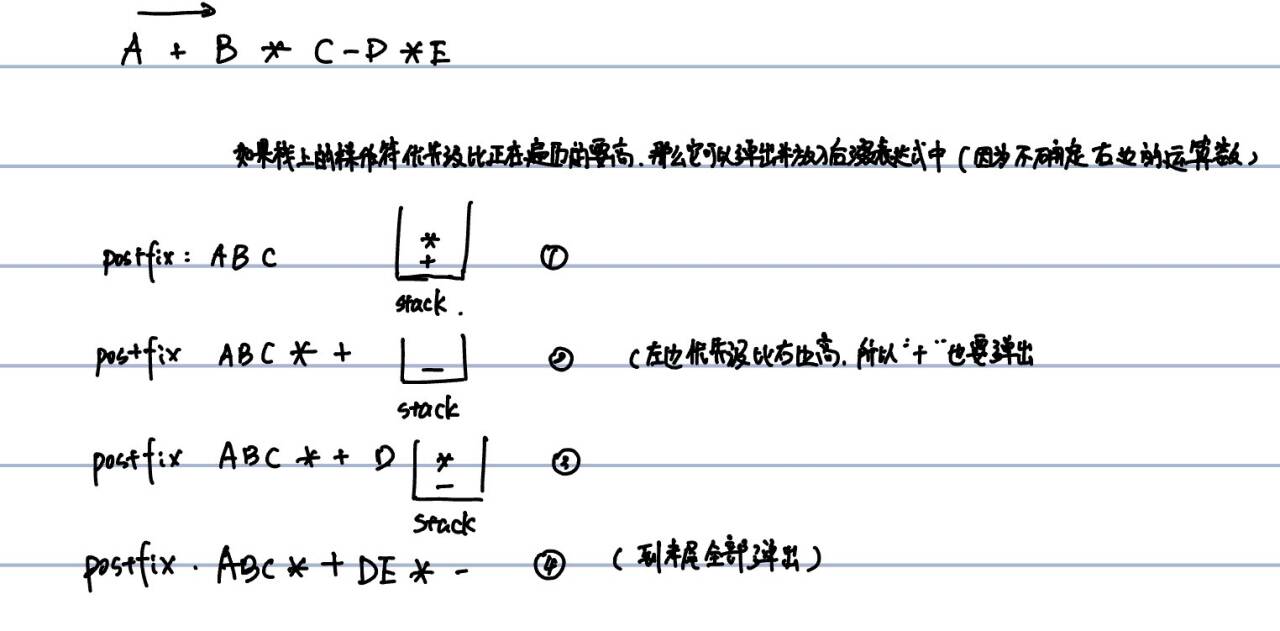 A + B * C - D * E
如果栈上的操作符优先级比正在遍历的要高，那么它可以弹出并放入后缀表达式中（因为不确定右边的运算数）
postfix: ABC * + stack. ①
postfix ABC * + - stack ② （左边优先级比右边高，所以“+”也要弹出
postfix ABC * + D * - stack ③
postfix. ABC * + DE * - ④ （到末尾全部弹出）